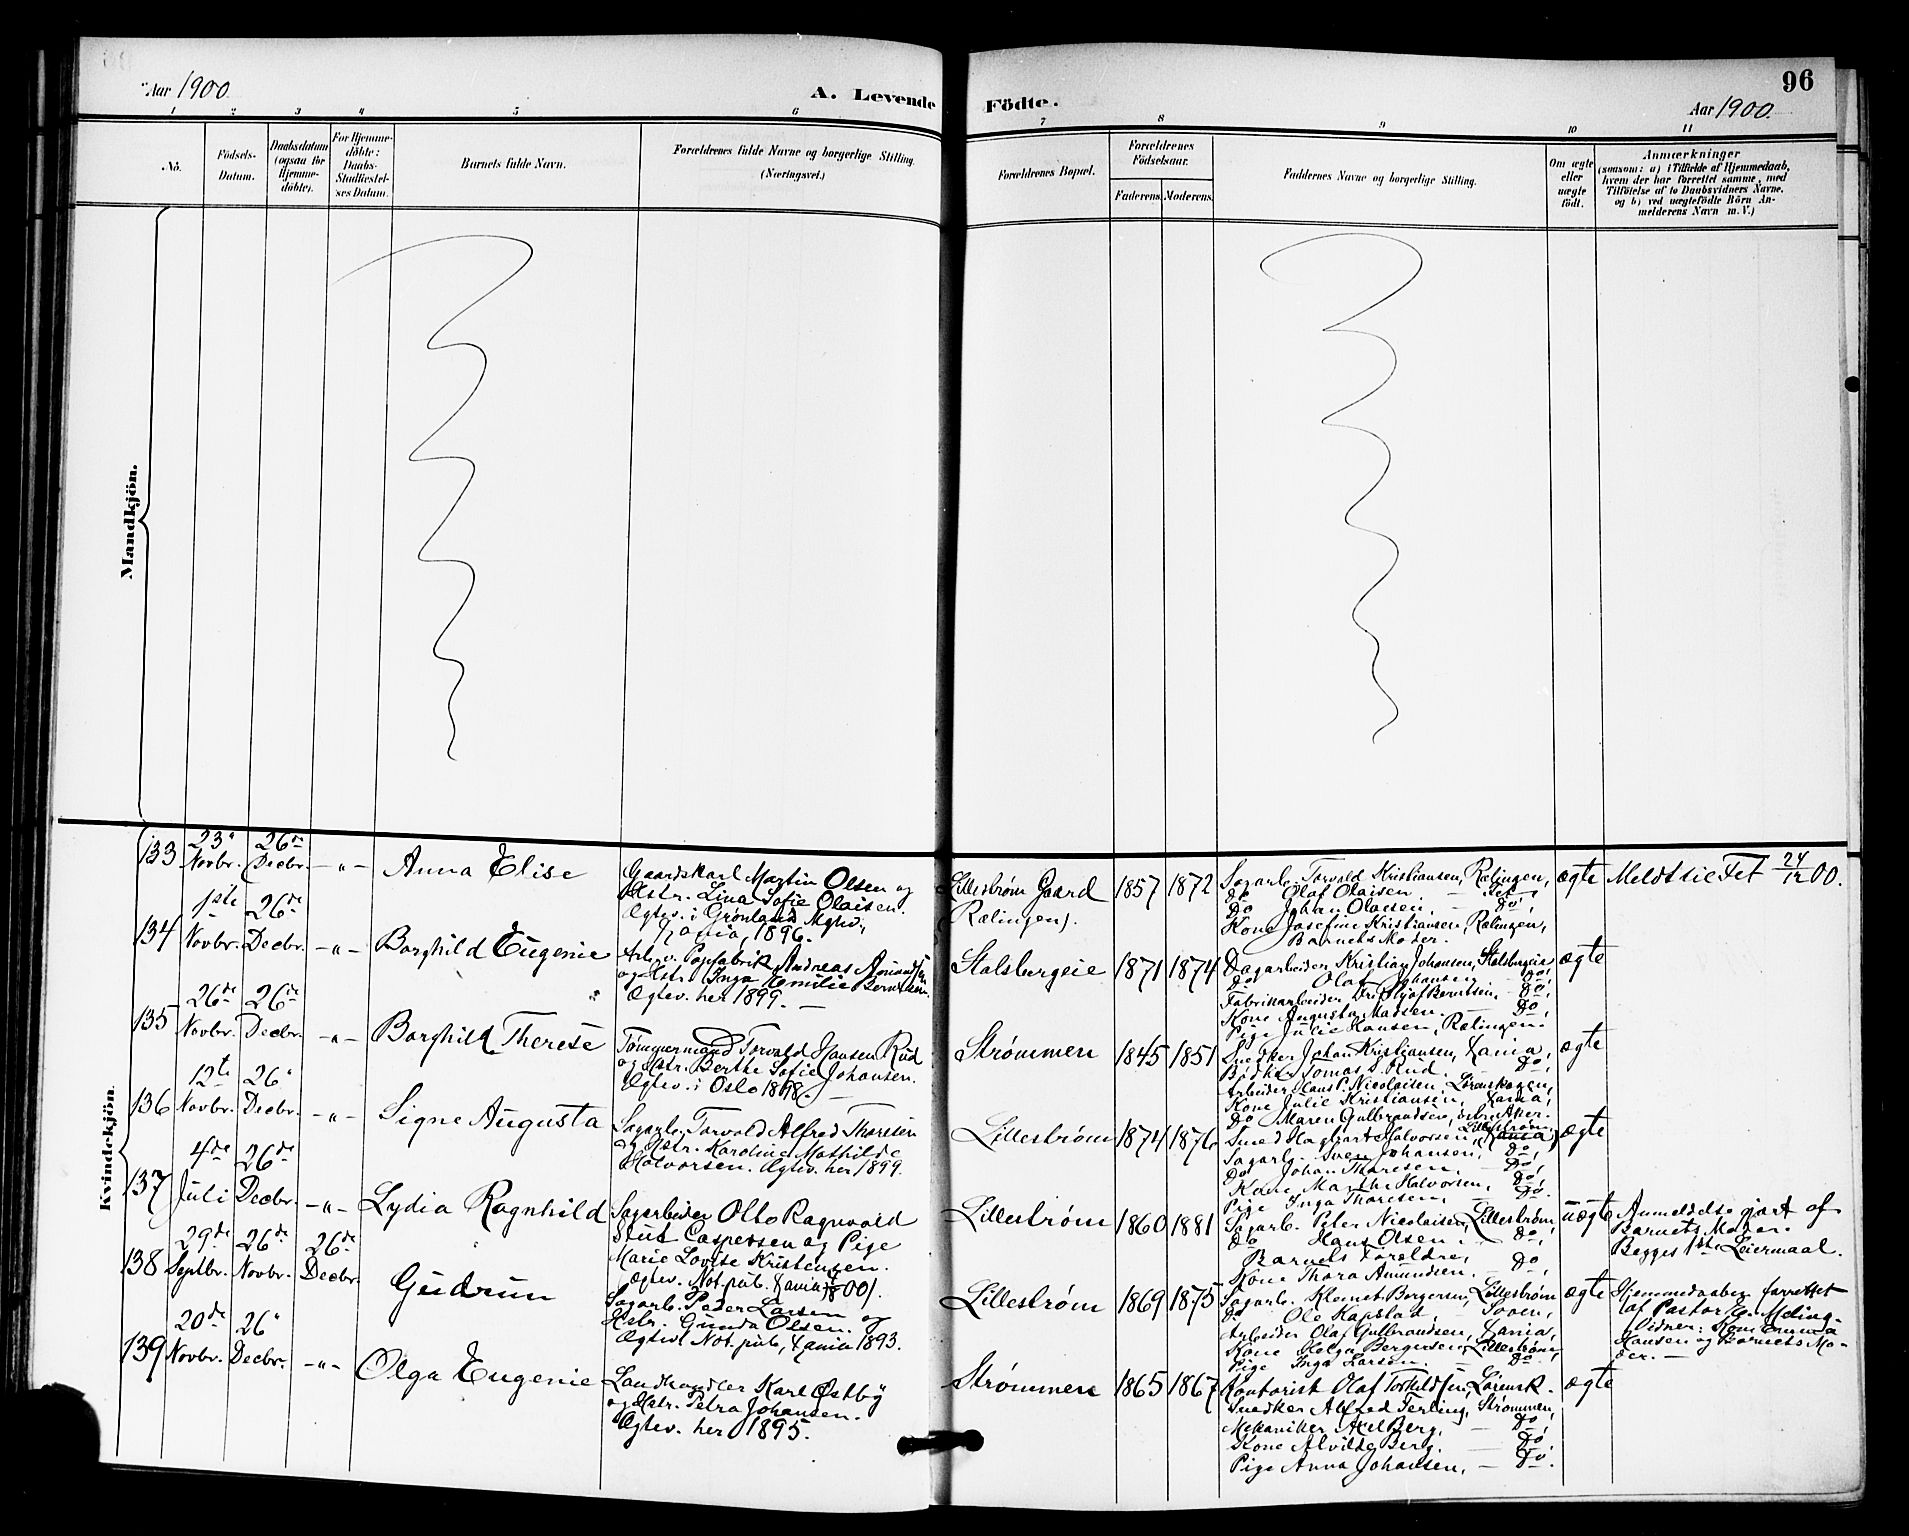 Aar 1900
A. Levende
Födte.
96
Aar 1900.
1 2 3 4 5 6 7 8 9 10 11
No.
Födsels-
Datum.
Daabsdatum
(ogsaa for
Hjemme-
döbte).
For Hjemme-
döbte:
Daabs-
Stadfæstel-
ses Datum.
Barnets fulde Navn.
Forældrenes fulde Navne og borgerlige Stilling.
(Næringsvei.)
Forældrenes Bopæl.
Forældrenes
Födselsaar.
Faderens. Moderens.
Faddernes Navne og borgerlige Stilling.
Om ægte
eller
uægte
födt.
Anmærkninger
(saasom: a) i Tilfælde af Hjemmedaab,
hvem der har forrettet samme, med
Tilföielse af to Daabsvidners Navne,
og b) ved uægtefödte Börn An-
melderens Navn m. V.)
Mandkjön.
Kvindekjön
133
23'
Novbr.
26de
Decbr.
- " -
Anna Elise
Gaardskarl Martin Olsen og
Hstr. Lina Sofie Olaisen.
Ægtev. i Grønland Mghd.,
Xjania, 1896.
Lillestrøm Gaard
(Rælingen).
1857 1872
Sagarb. Torvald Kristiansen, Rælingen,
Do Olaf Olaisen — Fet,
Do Johan Olaisen, — Do,
Kone Josefine Kristiansen, Rælingen,
Barnets Moder.
ægte
Meldt til Fet 24/12 00.
134
1ste
Novbr.
26de
Decbr.
- " -
Borghild Eugenie
Arb. v. Papfabrik Andreas Amundsen
og Hstr. Inga Emilie Berntsen.
Ægtev. her 1899. —
Stalsbergeie
1871 1874
Dagarbeider Kristian Johansen, Stalsbergeie
Do Olaf Johansen — Do,
Fabrikarbeider Fridthjof Berntsen, — Do,
Kone Augusta Madsen. — Do,
Pige Julie Hansen, Rælingen.
ægte
135
26de
Novbr.
26de
Decbr.
- " -
Borghild Therese
Tømmermand Torvald Hansen Rud
og Hstr. Berthe Sofie Johansen.
Ægtev. i Oslo 1898. —
Strømmen
1845 1851
Snedker Johan Kristiansen, Xania,
Bødker Tomas S. Rud. — Do,
Arbeider Hans P. Nicolaisen, Lørenskogen,
Kone Julie Kristiansen, Xania,
Do Maren Gulbrandsen, østre Aker.
ægte
136
12te
Novbr.
26'
Decbr.
- " -
Signe Augusta
Sagarb. Torvald Alfred Thoresen
og Hstr. Karoline Mathilde
Halvorsen. Ægtev. her 1899.
Lillestrøm
1874 1876
Smed Hagbart Halvorsen, Lillestrøm,
Sagarb. Sven Johansen, Do,
Do Johan Thoresen, — Do,
Kone Marthe Halvorsen, Do,
Pige Inga Thoresen, — Do.
ægte
137
4de
Juli
26de
Decbr.
- " -
Lydia Ragnhild
Sagarbeider Otto Ragnvald
Stub Caspersen og Pige
Marie Lovise Kristensen.
Ægtev. Not. pub. Xania
Lillestrøm
1860 1881
Sagarb. Peter Nicolaisen, Lillestrøm,
Do Hans Olsen — Do,
Barnets Forældre, Do,
Kone Thora Amundsen. — Do,
uægte
Anmeldelse gjort af
Barnets Moder.
Begges 1ste Leiermaal.
138
29de
Septbr.
26de
Novbr.
26de
Decbr.
Gudrun
Sagarb. Peder Larsen og
Hstr. Gunda Olsen.
Ægtev. Not. pub., Xania 1893.
Lillestrøm
1869 1875
Sagarb. Klemet Borgersen, Lillestrøm
Do Ole Kapstad,
Arbeider Olaf Gulbrandsen, Xania,
Kone Helga Borgersen, Lillestrøm,
Pige Inga Larsen. — Do.
ægte
Hjemmedaaben forrettet
af Pastor
Vidner: Kone Emma
Hansen og Barnets Mo-
der. —
139
20de
Novbr.
26'
Decbr.
- " -
Olga Eugenie
Landhandler Karl Østby
og Hstr. Petra Johansen.
Ægtev. her 1895.
Strømmen
1865 1867
Kontorist Olaf Torkildsen, Lørensk.
Snedker Alfred Terling, Strømmen,
Mekaniker Axel Berg, — Do,
Kone Alvilde Berg. — Do,
Pige Anna Johansen, — Do.
ægte